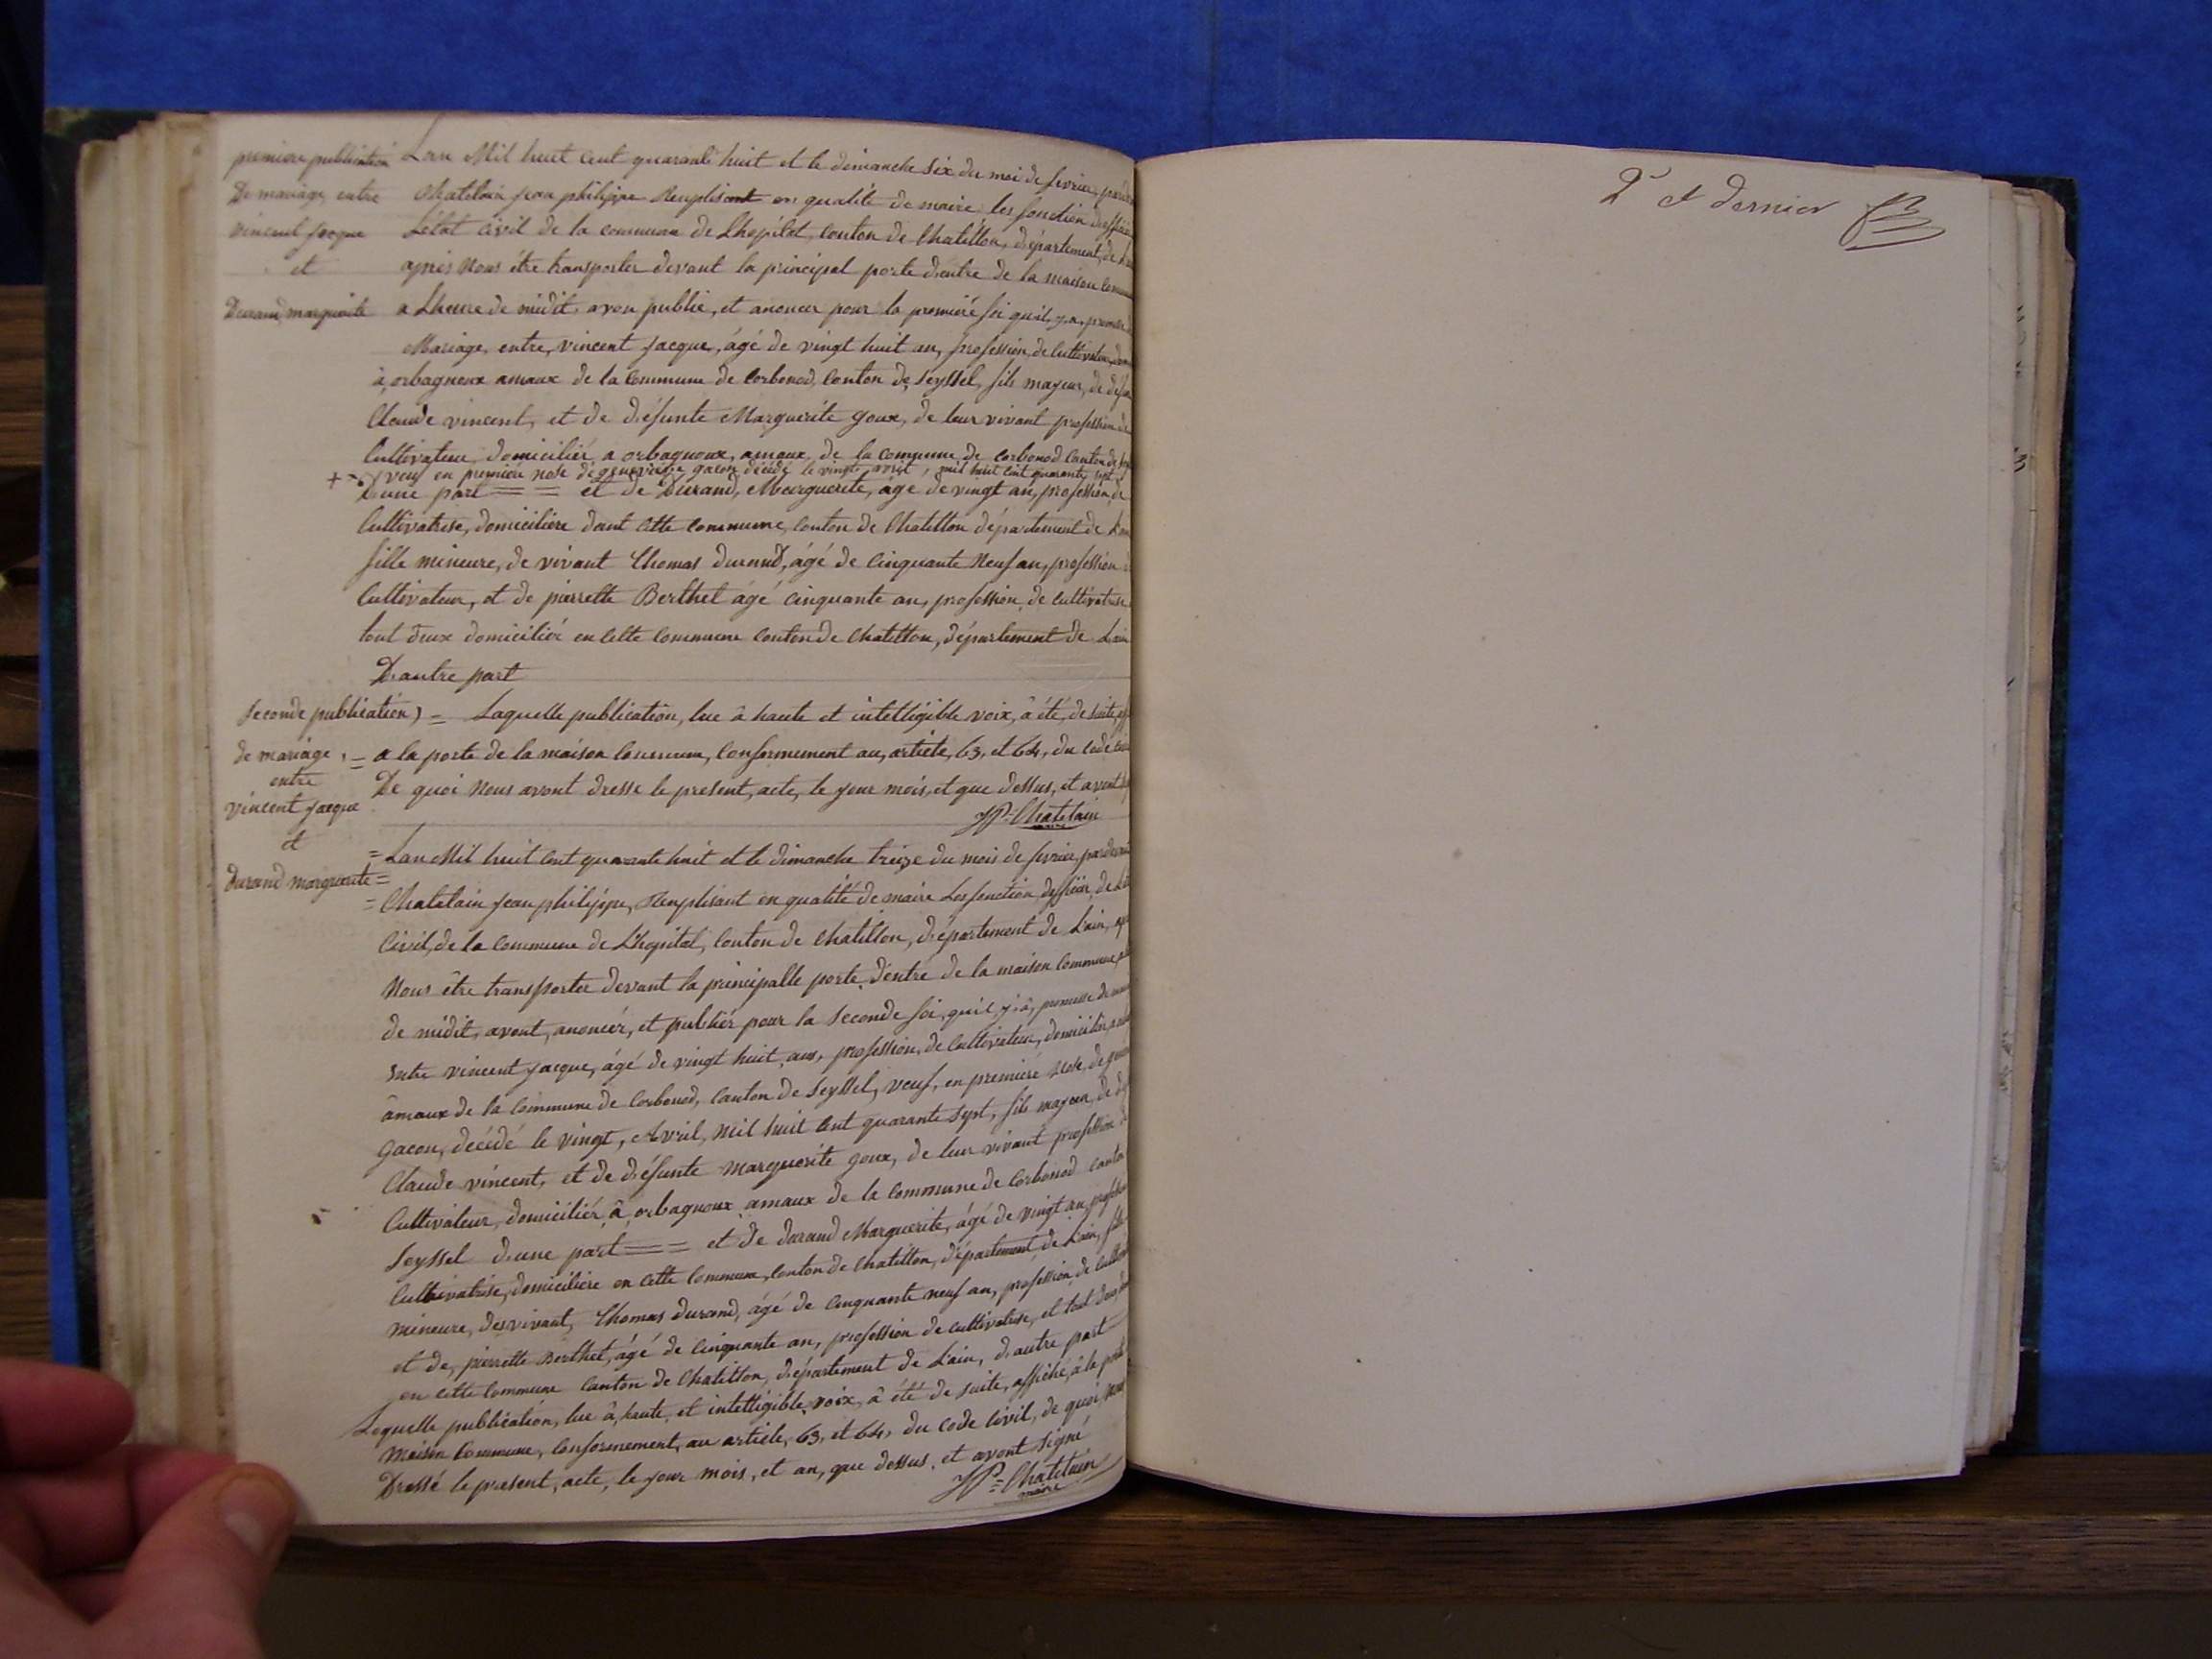 premiere publication
De mariage entre
vincent jacque
et
Durand marguerite
Lan Mil huit cent quarante huit et le dimanche six du moi de fevrier
Chatelain jean philippe Remplisant en qualité de maire les fonction
Létat civil de la commune de Lhopital, conton de Chatillon, département, de
apris Nous être transporter devant la principal porte dentre de la maison
a Lheure de midit, avon publie, et anoncer pour la premiere foi quil, y,a,
Mariage, entre, vincent jacque, âgé de vingt huit an, profession, de Cultivateur,
à, orbagnoux amaux de la Commune de Corbonod, conton de, Seyssel, fils majeur, de
Claude vincent, et de défunte Marguerite goux, de leur vivant profession de
Cultivateur, domiciliér a orbagnoux, amaux, de la commune, de corbonod canton de
+ veuf en premiere nose de genevieve gacon décédé le vingt avril, mil huit cent quarante sept
D'une part == et de Durand, Marguerite, âge de vingt an, profession, de
Cultivatrise, domiciliere dant cette commune, conton de Chatillon département de Lain
fille mineure, de vivant Thomas durand, âgé de Cinquante Neuf an, profession
Cultivateur, et de pierrette Berthet âgé cinquante an, profession, de cultivatrise
tout deux domiciliér en cette commune conton de Chatillon, département de Lain
D'autre part
seconde publication)
de mariage
entre
vincent jacque
et
durand marguerite =
= Laquelle publication, lue à haute et intelligible voix, à été, de suite,
= a la porte de la maison Commune, Conformement au, article, 63, et 64, du code
De quoi Nous avont dresse le present, acte, le jour mois, et que dessus, et avont
JP= Chatelain
= Lan Mil huit cent quarante huit et le dimanche treize du mois de fevrier, pardevant
= Chatelain jean philippe, Remplisant en qualité de maire Les fonction
Civil, de la Commune de L'hopital, conton de Chatillon, département de L'ain,
Nous être transporter devant la principalle porte, d'entre de la maison Commune,
de midit, avont, anoncér, et publiér pour la Seconde foi, qu'il, y, à, promesse de
Entre vincent jacque, âgé de vingt huit, ans, profession, de Cultivateur, domicilié
âmaux de la Commune de Corbonod, Canton de Seyssel, veuf, en premiere nose, de
Gacon, décédé le vingt, Avril, mil huit cent quarante Sept, fils majeur, de
Claude vincent, et de défunte marguerite goux, de leur vivant profession
Cultivateur, domiciliér, â, orbagnoux, amaux de la Commune de Corbonod canton
Seyssel d'une part == et de durand Marguerite, âgé de vingt an,
Cultivatrise, domiciliere en cette Commune, Conton de Chatillon, département de L'ain,
mineure, des vivant, Thomas durand, âgé de Cinquante neuf an, profession de
et de, pierrette Berthet, âgé de Cinquante an, profession de cultivatrise, et tout deux,
en cette Commune Canton de Chatillon, département de L'ain, d'autre part
Laquelle publication, lue à, haute, et intelligible, voix, à été de suite, affiché, à la porte
Maison Commune, Conformement, au article, 63, et 64, du code civil, de quoi, Nous
Dressé le present, acte, le jour mois, et an, que dessus, et avont signé
JP= Chatelain
maire
2e et dernier